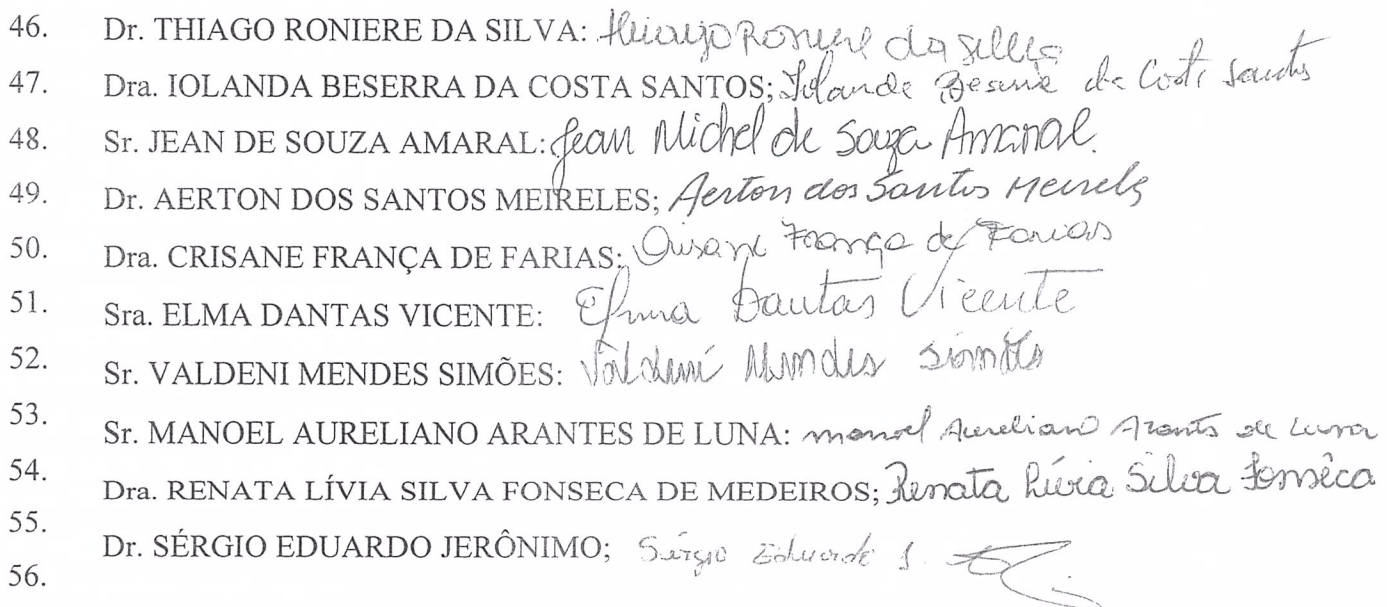 46. Dr. THIAGO RONIERE DA SILVA: Thiago Roniere da Silva
47. Dra. IOLANDA BESERRA DA COSTA SANTOS; Iolanda Beserra da Costa Santos
48. Sr. JEAN DE SOUZA AMARAL: Jean Michel de Souza Amaral.
49. Dr. AERTON DOS SANTOS MEIRELES; Aerton dos Santos Meireles
50. Dra. CRISANE FRANÇA DE FARIAS: Crisane França de Farias
51. Sra. ELMA DANTAS VICENTE: Elma Dantas Vicente
52. Sr. VALDENI MENDES SIMÕES: Valdeni Mendes Simões
53. Sr. MANOEL AURELIANO ARANTES DE LUNA: manoel Aureliano Arantes de Luna
54. Dra. RENATA LÍVIA SILVA FONSECA DE MEDEIROS; Renata Lívia Silva Fonsêca
55. Dr. SÉRGIO EDUARDO JERÔNIMO; Sérgio Eduardo J.
56.